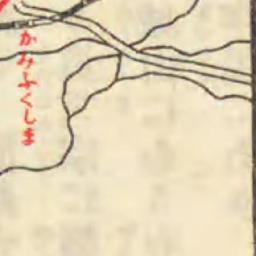 かみふくしま